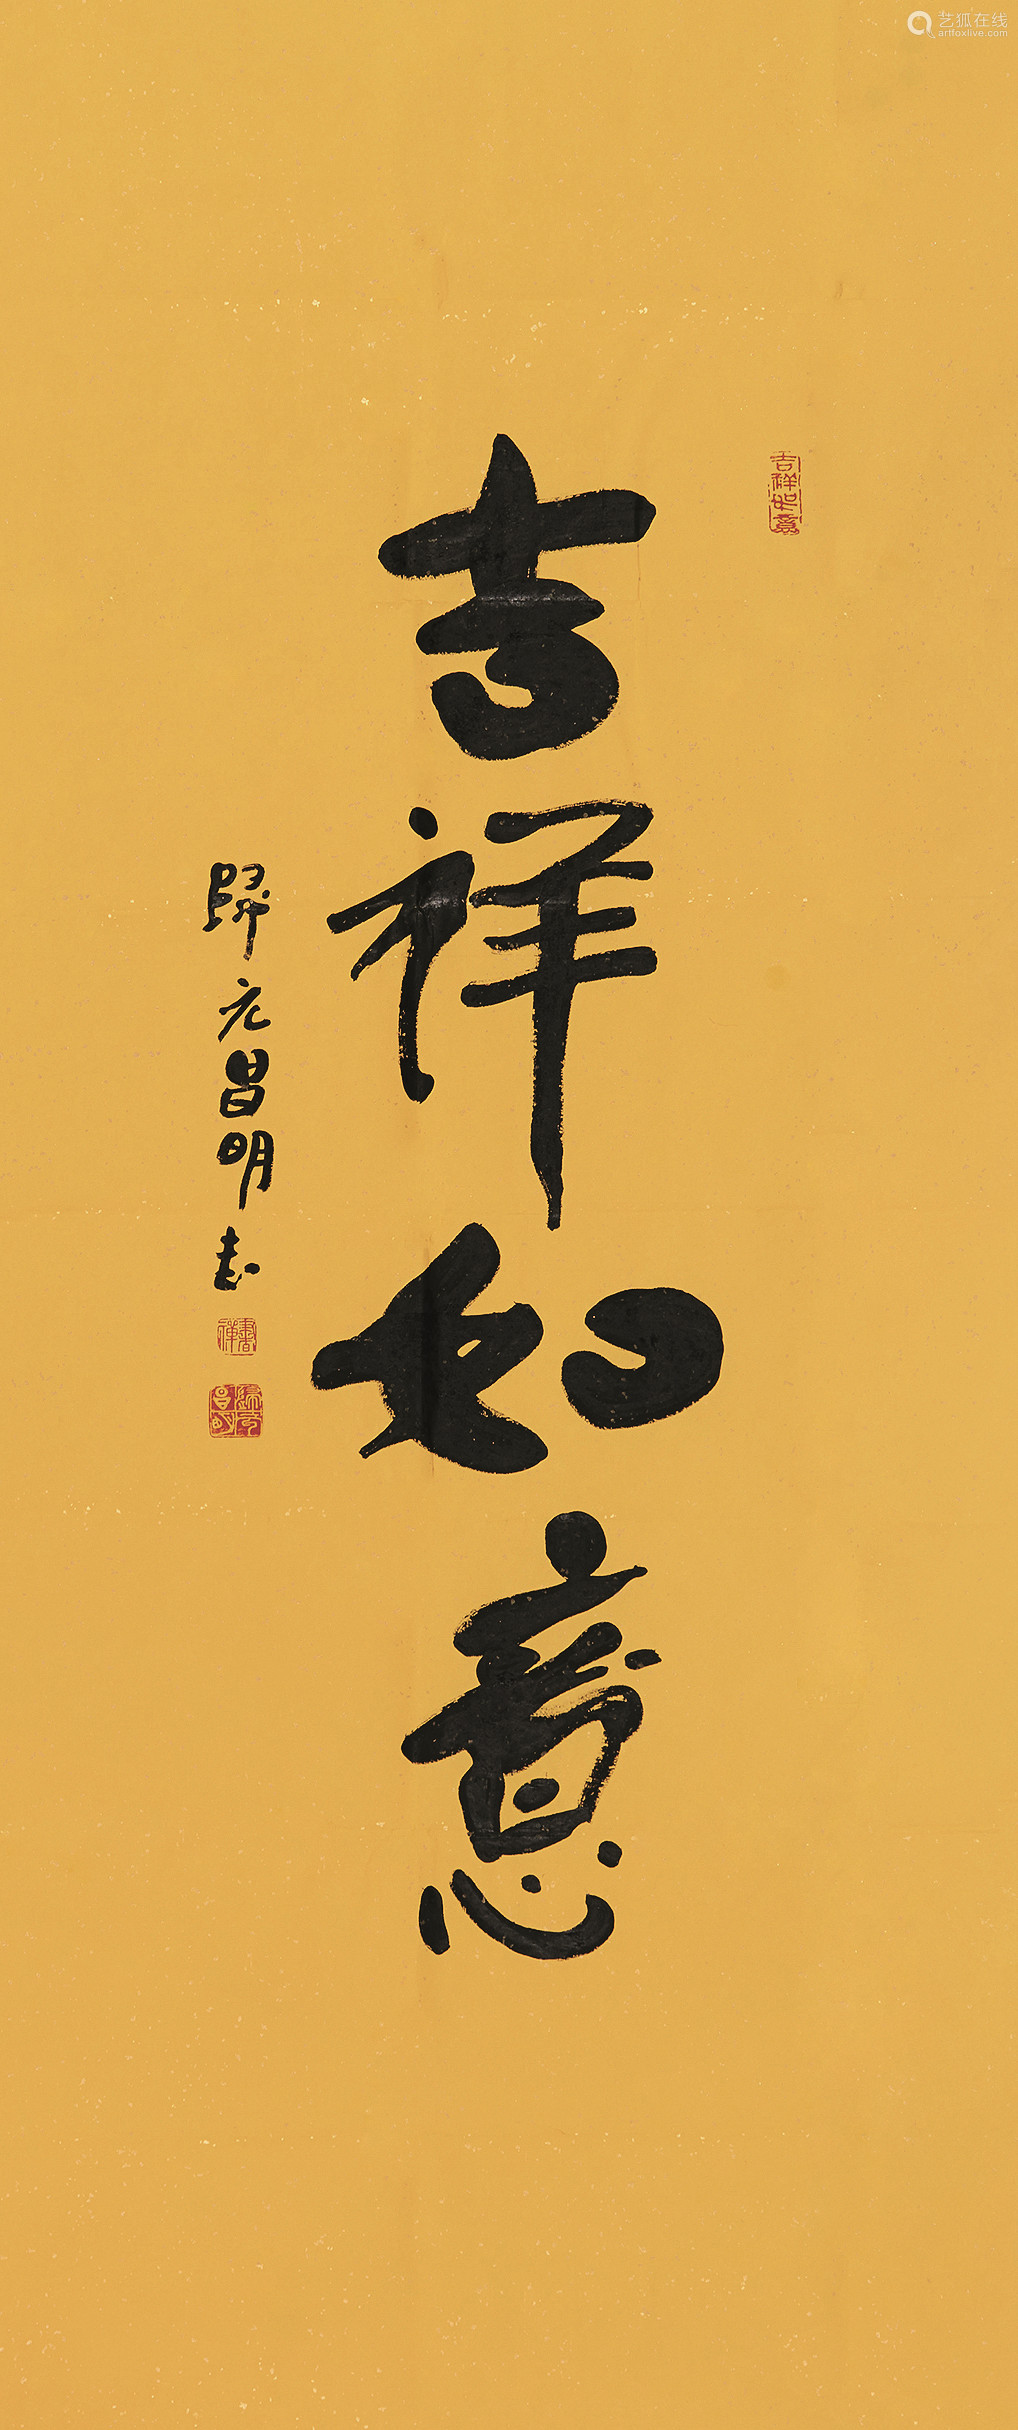 艺狐在线
artfoxlive.com
吉祥如意
吉祥如意
歸元昌明書
書禪
歸元昌明